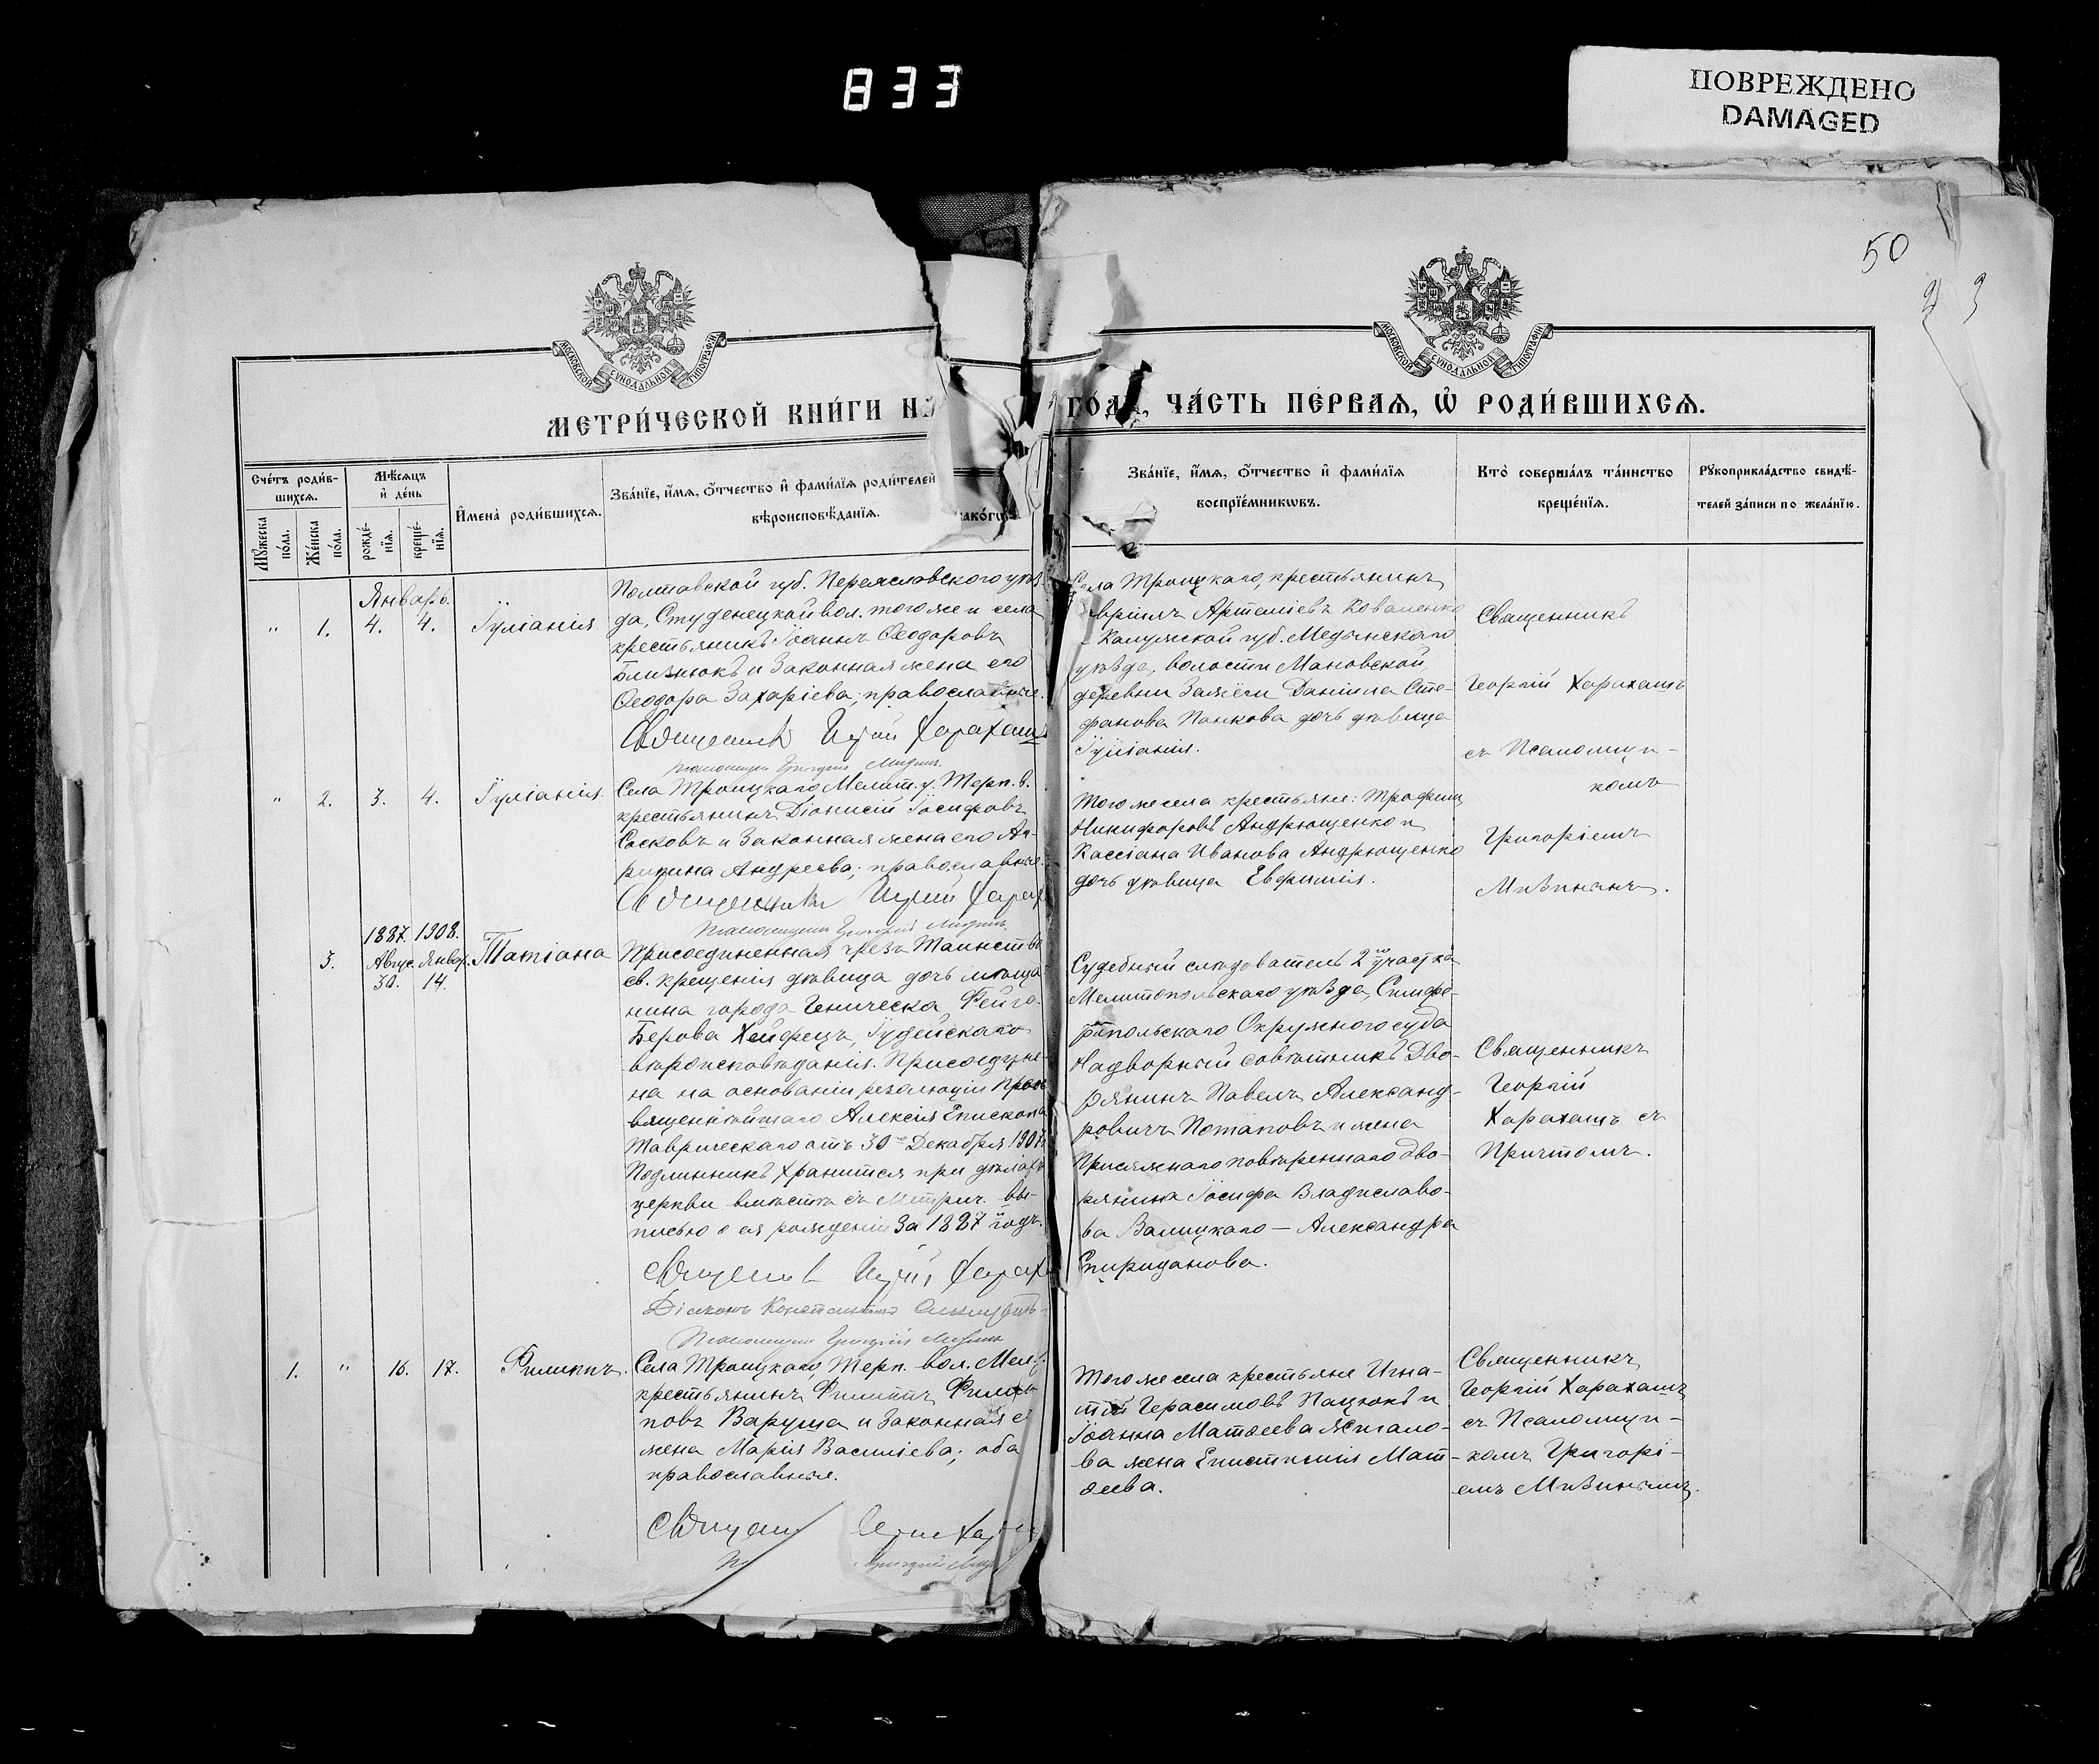 833
ПОВРЕЖДЕНО
DAMAGED
50
МОСКОВСКОЙ СѴНОДАЛЬНОЙ ТИПОГРАФІИ
МОСКОВСКОЙ СѴНОДАЛЬНОЙ ТИПОГРАФІИ
МЕТРИ́ЧЕСКОЙ КНИ́ГИ НА
ГО́ДЪ, ЧА́СТЬ ПЕ́РВАѦ, Ѡ҆ РОДИ́ВШИХСѦ.
Сче́тъ роди́в-
шихсѧ.
Мꙋ́жеска
по́ла.
Же́нска
по́ла.
Мѣ́сѧцъ
и҆ де́нь
рожде́-
нїѧ.
креще́-
нїѧ.
И҆мена̀ роди́вшихсѧ.
Зва́нїе, и҆́мѧ, ѻ҆́тчество и҆ фами́лїѧ роди́телей
како́гѡ
вѣроисповѣ́данїѧ.
Зва́нїе, и҆́мѧ, ѻ҆́тчество и҆ фами́лїѧ
воспрїе́мникѡвъ.
Кто̀ соверша́лъ та́инство
креще́нїѧ.
Рꙋкоприкла́дство свидѣ́-
телей за́писи по жела́нїю.
Январь.
" 1. 4. 4. Іуліанія
Полтавской губ. Переяславского уѣз-
да, Студенецкой вол. того же и села
крестьянинъ Іоаннъ Ѳеодоровъ
Близнюкъ и законная жена его
Ѳеодора Захаріева; православные.
Священникъ Георгій Харахашъ
Села Троицкаго, крестьянинъ
Артеміевъ Коваленко
Калужской губ. Медынскаго
уѣзда, волости Мановской
деревни Даніила Сте-
фанова Панкова дочь дѣвица
Іуліанія.
Священникъ
Георгій Харахашъ
съ Псаломщи-
комъ
Григоріемъ
Мизинымъ.
" 2. 3. 4. Іуліанія
Села Троицкаго Мелит. у. Терп. в.
крестьянинъ Діонисій Іосифовъ
Сосковъ и законная жена его Аг-
рипина Андреева; православные.
Священникъ Георгій Харах
Псаломщикъ Григорій Мизинъ
Того же села крестьяне: Трофимъ
Никифоровъ Андрющенко и
Кассіана Иванова Андрющенко
дочь дѣвица Евфимія.
1887. 1908.
3. Авгус. Январ. Татіана
30. 14.
Присоединенная чрезъ Таинство
св. крещенія дѣвица дочь мѣща-
нина города Геническа Фейга
Берова Хейфецъ, Іудейскаго
вѣроисповѣданія. Присоедине-
на на основаніи резолюціи Прео-
священнѣйшаго Алексія Епископа
Таврическаго отъ 30 го Декабря 1907
Подлинникъ хранится при дѣлахъ
церкви вмѣстѣ съ метрич. вы-
писью о ея рожденіи за 1887 годъ.
Священникъ Георгій Харах
Діаконъ Константинъ
Псаломщикъ Григорій Мизинъ
Судебный слѣдователь 2 го участка
Мелитопольскаго уѣзда, Симфе-
ропольскаго Окружного суда
Надворный совѣтникъ Дво-
рянинъ Павелъ Александ-
ровичъ Потаповъ и жена
Присяжнаго повѣреннаго дво-
рянина Іосифа Владиславо-
ва Валицкаго — Александра
Спиридонова.
Священникъ
Георгій
Харахашъ съ
Причтомъ.
1. " 16. 17. Филиппъ.
Села Троицкаго, Терп. вол. Мел. у.
крестьянинъ Филиппъ Филип-
повъ Варуша и законная е
жена Марія Василіева; оба
православные.
Того же села крестьяне Игна-
тій Герасимовъ Пацюкъ и
Іоанна Матѳеева
ва жена Епистимія Мат-
ѳеева.
Священникъ
Георгій Харахашъ
съ Псаломщи-
комъ Григорі-
емъ Мизинымъ.